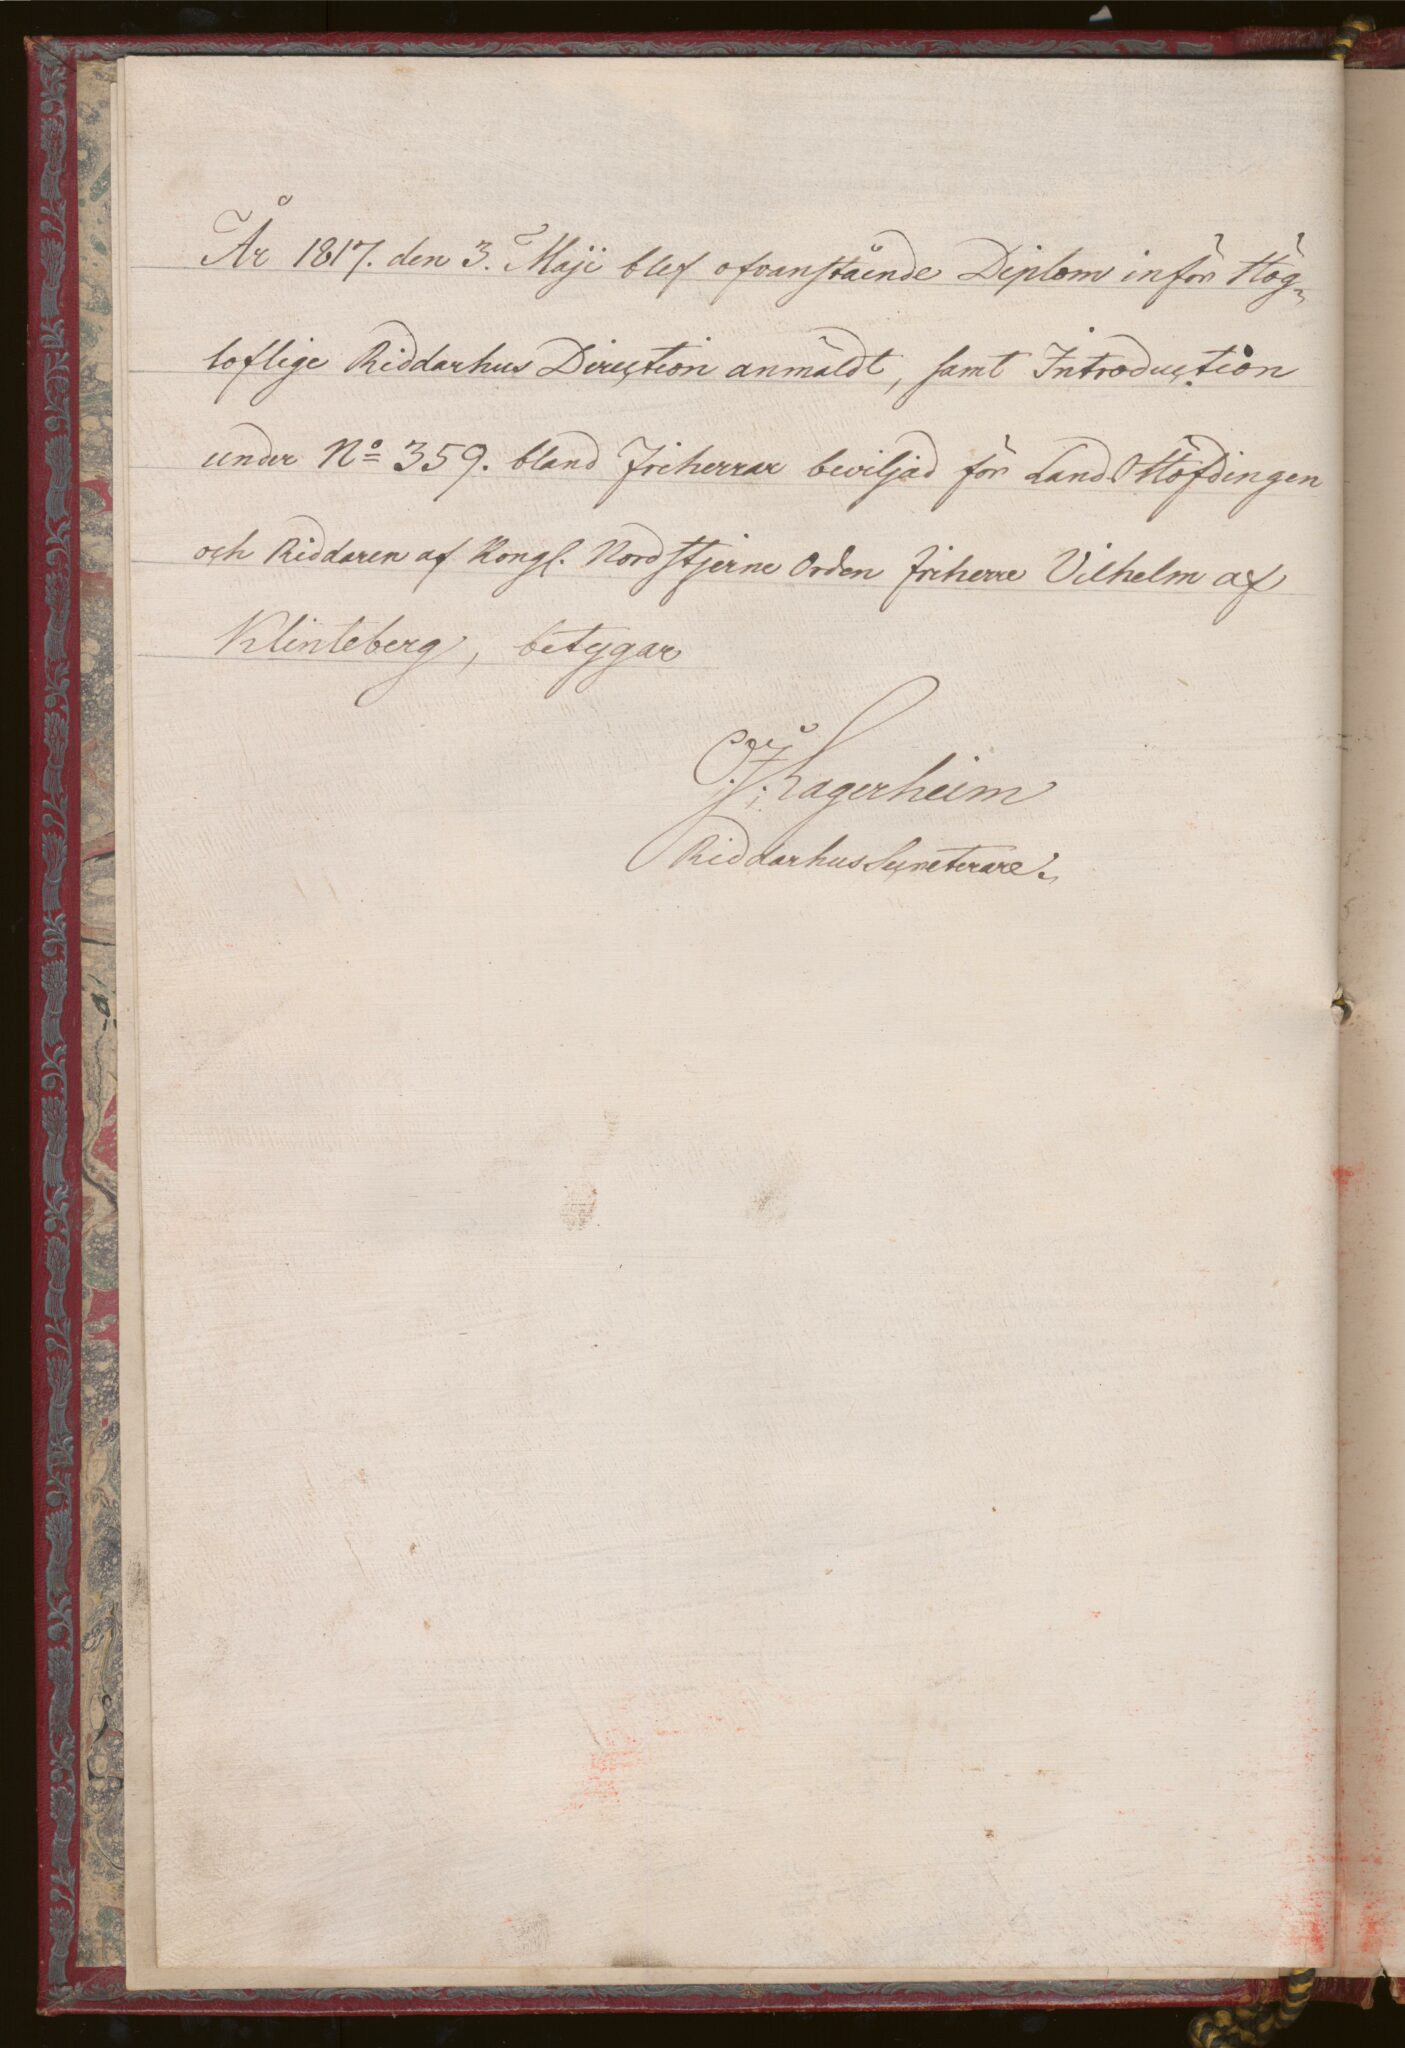 År 1817. den 3. Maji blef ofvanstående Diplom inför Hög-
loflige Riddarhus Direction anmäldt, samt Introduction
under No 359. bland Friherrar beviljad för LandsHöfdingen
och Riddaren af Kongl. Nordstjerne Orden Friherre Vilhelm af
Klinteberg, betygar
Lagerheim
RiddarhusSecreterare.